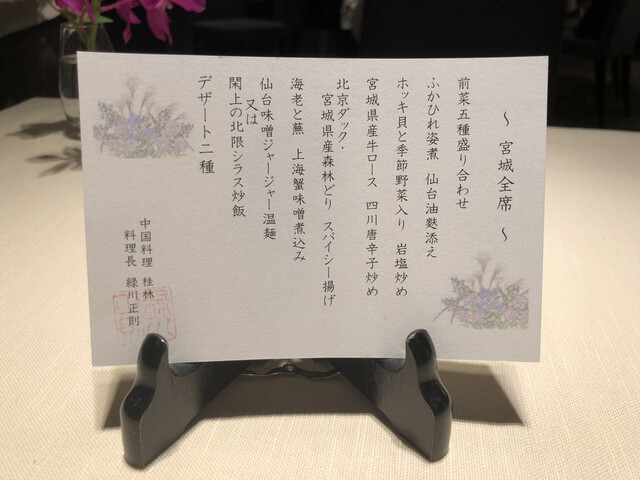 ～ 宮城全席 ～
前菜五種盛り合わせ
ふかひれ姿煮 仙台油麩添え
ホッキ貝と季節野菜入り 岩塩炒め
宮城県産牛ロース 四川唐辛子炒め
北京ダック・
宮城県産森林どり スパイシー揚げ
海老と蕪 上海蟹味噌煮込み
仙台味噌ジャージャー温麺
又は
閖上の北限シラス炒飯
デザート二種
中国料理 桂林
料理長 緑川正則